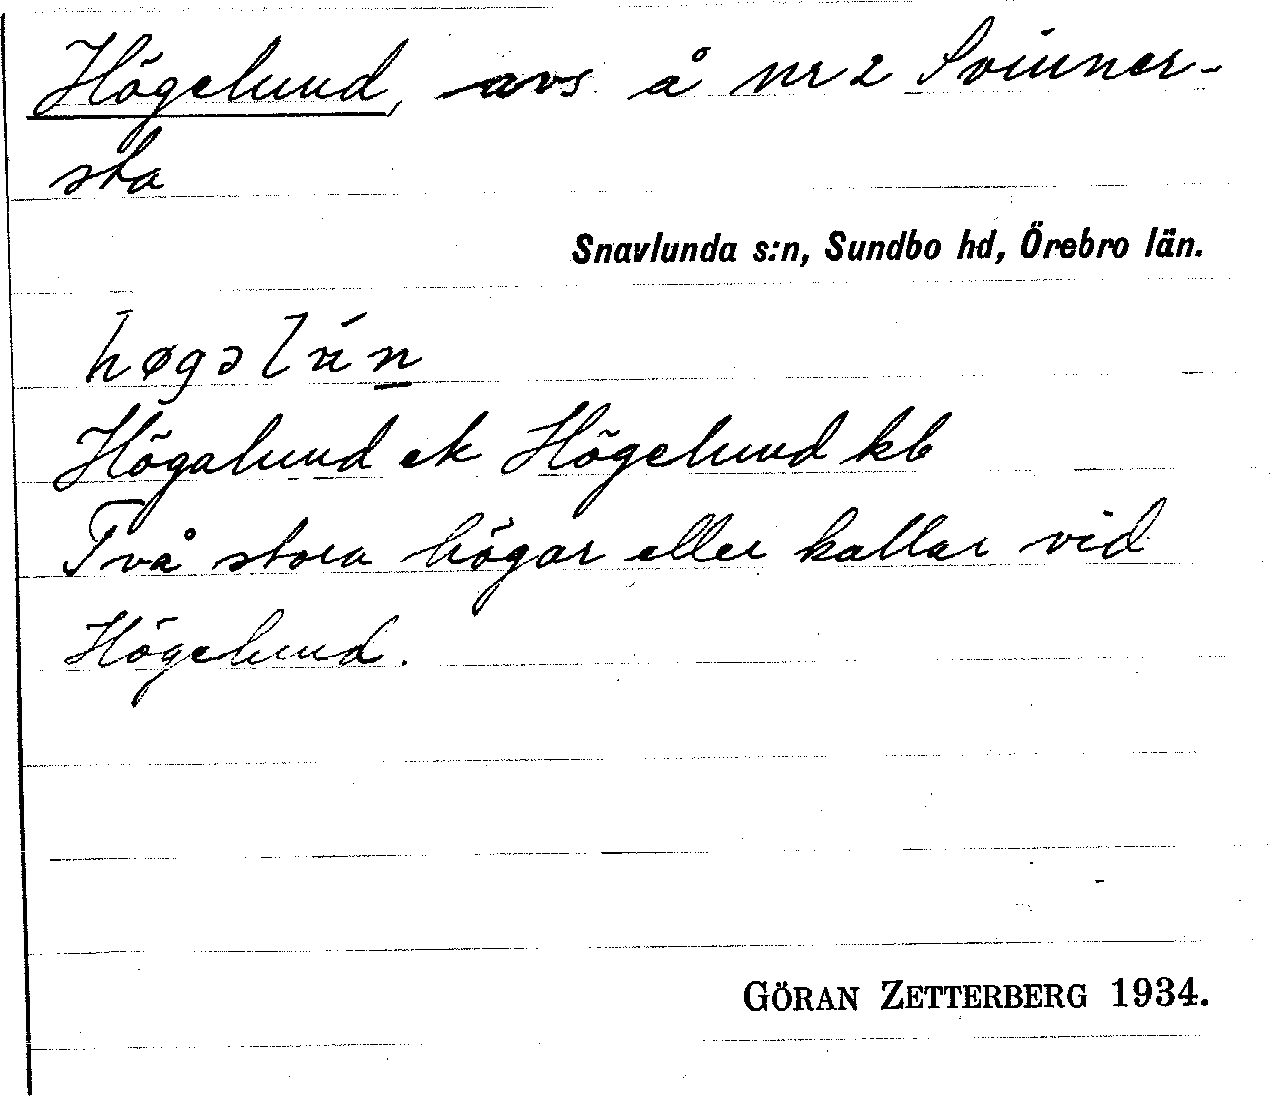 Högelund, avs. å nr 2 Svinner-
sta
Snavlunda s:n, Sundbo hd, Örebro län.
høgəlún
Högalund ek Högelund kb
Två stora högar eller kallar vid
Högelund.
GÖRAN ZETTERBERG 1934.